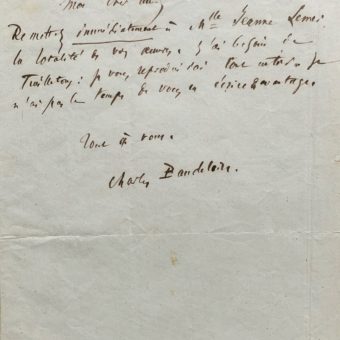 Mon cher ami,
Remettez immédiatement à Mlle Jeanne Lemer
la totalité de vos œuvres. J'ai besoin de
vous tout entier. Je
n'ai pas le temps de vous en écrire davantage.
Tout à vous.
Charles Baudelaire.